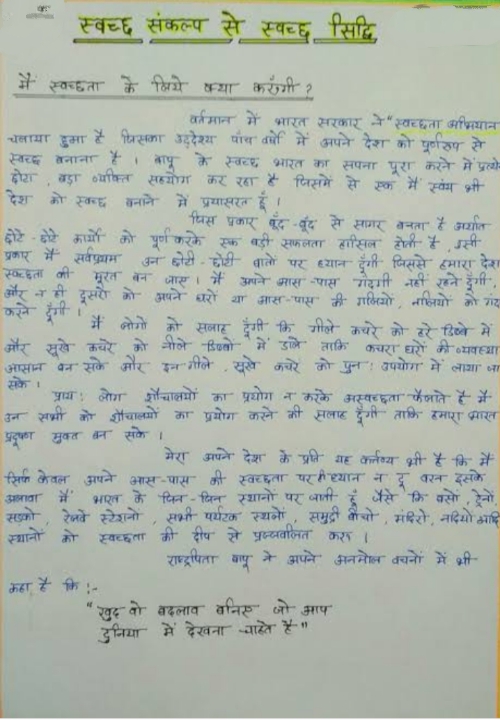 स्वच्छ संकल्प से स्वच्छ सिद्धि
मैं स्वच्छता के लिये क्या करुँगी ?
वर्तमान में भारत सरकार ने "स्वच्छता अभियान
चलाया हुआ है जिसका उद्देश्य पाँच वर्षों में अपने देश को पूर्णरूप से
स्वच्छ बनाना है । बापू के स्वच्छ भारत का सपना पूरा करने में प्रत्ये
छोटा, बड़ा व्यक्ति सहयोग कर रहा है जिसमें से एक मैं स्वंय भी
देश को स्वच्छ बनाने में प्रयासरत हूँ ।
जिस प्रकार बूँद-बूँद से सागर बनता है अर्थात
छोटे-छोटे कार्यो को पूर्ण करके एक बड़ी सफलता हासिल होती है इसी
प्रकार मैं सर्वप्रथम उन छोटी-छोटी बातो पर ध्यान दूँगी जिससे हमारा देश
स्वच्छता की मूरत बन जाए । मैं अपने आस-पास गंदगी नहीं रहने दूँगी,
और न ही दूसरों को अपने घरों या आस-पास की गलियों, नलियों को गं
करने दूँगी ।
मैं लोगो को सलाह दूँगी कि गीले कचरे को हरे डिब्बे में
और सूखे कचरे को नीले डिब्बो में डाले ताकि कचरा घरो की व्यवस्था
आसान बन सके और इन गीले, सूखे कचरे को पुन: उपयोग में लाया जा
सके ।
प्राय: लोग शौचालयों का प्रयोग न करके अस्वच्छता फैलाते है मैं
उन सभी को शौचालयों का प्रयोग करने की सलाह दूँगी ताकि हमारा भारत
प्रदूषण मुक्त बन सके ।
मेरा अपने देश के प्रति यह कर्तव्य भी है कि मैं
सिर्फ केवल अपने आस-पास की स्वच्छता पर ही ध्यान न दू वरन इसके
अलावा मैं भारत के जिन-जिन स्थानों पर जाती हूँ जैसे कि बसो, ट्रेनो
सड़को, रेलवे स्टेशनो, सभी पर्यटक स्थलो, समुद्री बीचो, मंदिरो, नदियों आदि
स्थानों को स्वच्छता की दीप से प्रज्जवलित करु ।
राष्ट्रपिता बापू ने अपने अनमोल वचनों में भी
कहा है कि :-
"खुद वो बदलाव बनिए जो आप
दुनिया में देखना चाहते है"